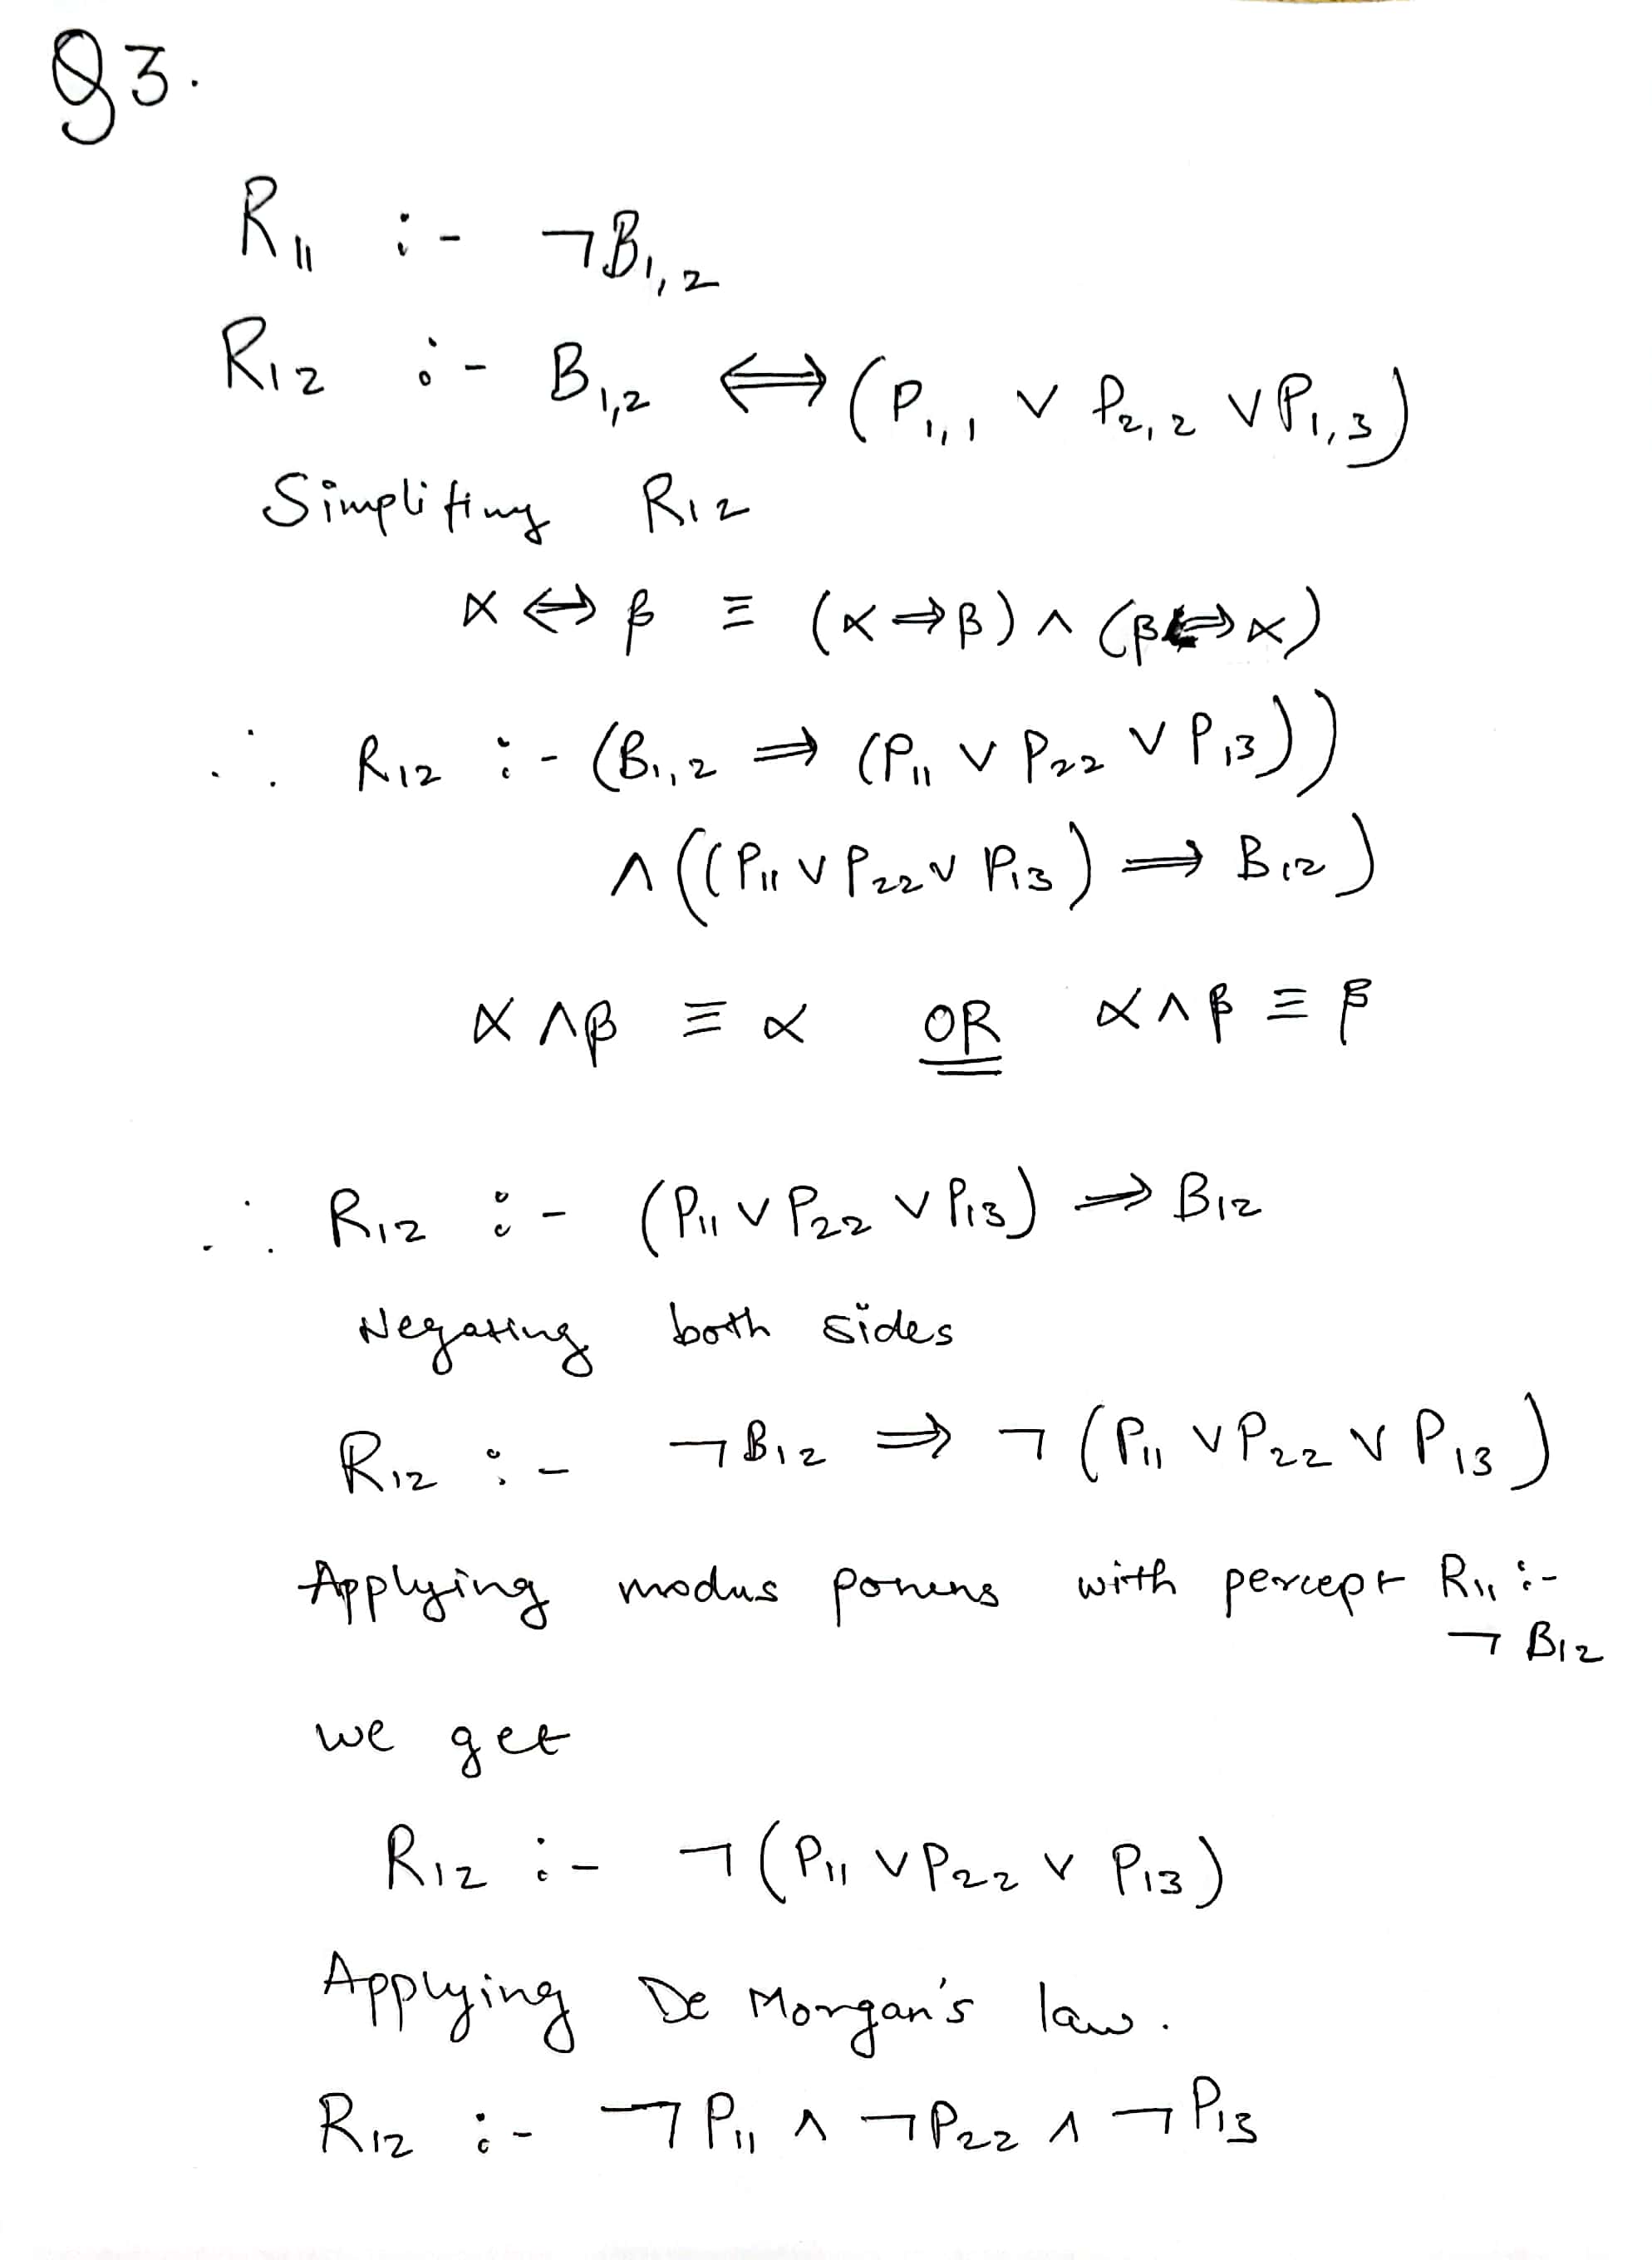 Q3.
R11 :- ¬B1,2
R12 :- B1,2 ⟺ (P1,1 ∨ P2,2 ∨ P1,3)
Simplifing R12
α ⟺ β ≡ (α ⟹ β) ∧ (β ⟹ α)
∴ R12 :- (B1,2 ⟹ (P11 ∨ P22 ∨ P13))
∧ ((P11 ∨ P22 ∨ P13) ⟹ B12)
α ∧ β ≡ α OR α ∧ β ≡ β
∴ R12 :- (P11 ∨ P22 ∨ P13) ⟹ B12
Negating both sides
R12 :- ¬B12 ⟹ ¬(P11 ∨ P22 ∨ P13)
Applying modus ponens with percept R11 :-
¬B12
we get
R12 :- ¬(P11 ∨ P22 ∨ P13)
Applying De Morgan's law.
R12 :- ¬P11 ∧ ¬P22 ∧ ¬P13